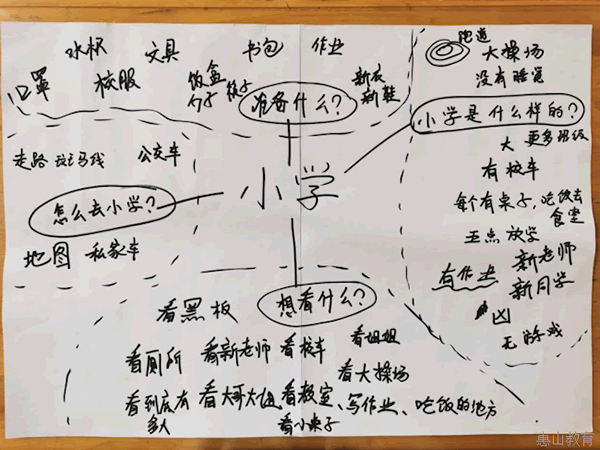 水杯 文具 书包 作业
口罩 校服 饭盒 勺子 筷子 新衣 新鞋
准备什么?
走路 斑马线 公交车
怎么去小学?
地图 私家车
小学
跑道
大操场
没有睡觉
小学是什么样的?
大 更多班级
有校车
每个有桌子,吃饭去
食堂
五点放学
有作业 新老师
新同学
凶
无游戏
想看什么?
看黑板
看厕所 看新老师 看校车 看姐姐
看大操场
看到底有 看大哥大姐 看教室、写作业、吃饭的地方
多大 看小桌子
惠山教育